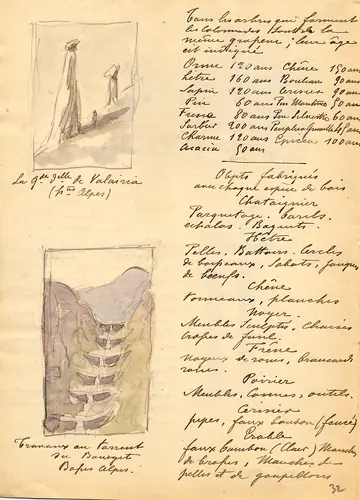 La gde Delle de Valairia
(Htes Alpes)
Travaux au torrent
du Bourget
Basses Alpes.
Tous les arbres qui forment
les colonnades sont de la
même grosseur; leur âge
est indiqué
Orme 120 ans Chêne 150 ans
Hêtre 160 ans Bouleau 90 ans
Sapin 120 ans Cerisier 90 ans
Pin 60 ans Pin Maritime 50 ans
Frêne 80 ans Pin Silvestre 60 ans
Sorbier 200 ans Peuplier 45 ans
Charme 120 ans Epicéa 100 ans
Acacia 50 ans
Objets fabriqués
avec chaque espèce de bois
Chataignier
Parquetage. Barils.
échalas. Baguets.
Hêtre
Pelles. Battoirs. Cercles
de boisseaux, Sabots, jougs
de boeufs.
Chêne
tonneaux, planches
Noyer.
Meubles sculptés, Chaises
Crosses de fusil.
Frêne
Noyaux de roues, Brancards
roues.
Poirier
Meubles, Cornes, outils.
Cerisier
pipes, faux bambou (foncé)
Erable
faux bambou (clair) Manches
de Crosses, Manches de
pelles et de goupillons
32